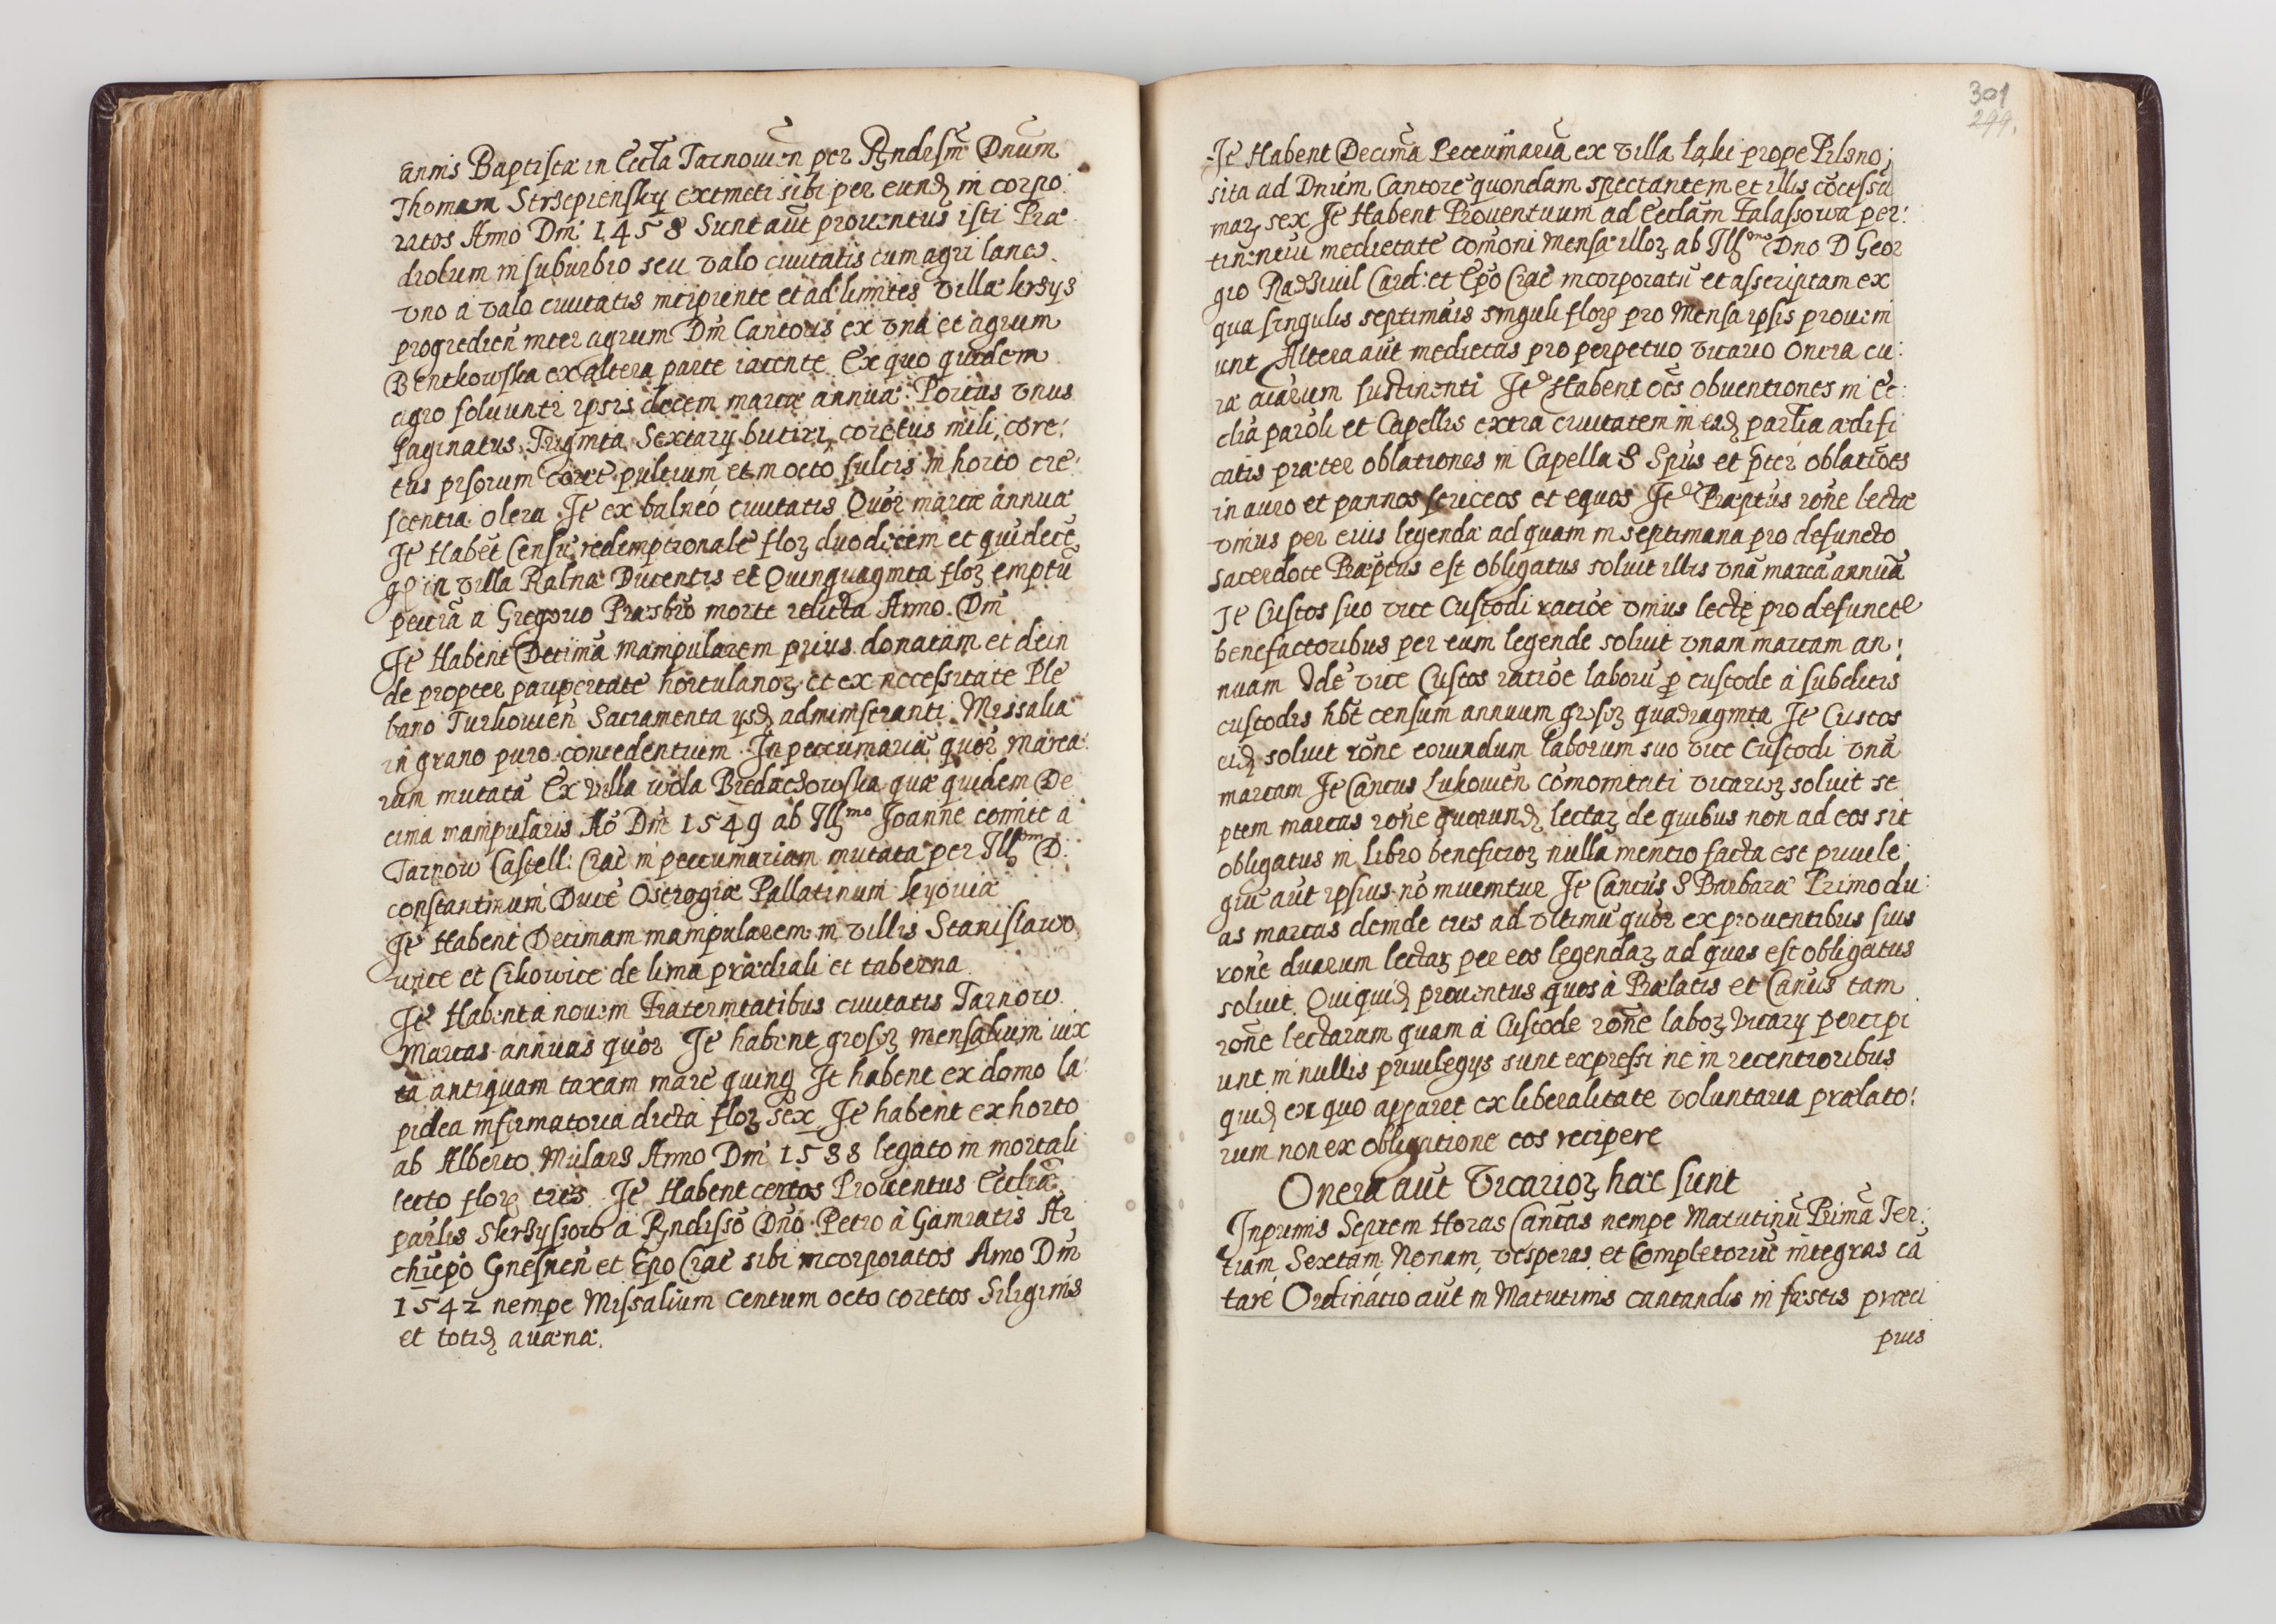 annis Baptistæ in Eccła Tarnovień per Rṇdissm̃ Dnũm
Thomam Strzepiensky extincti sibi per eundẹ in corpo:
ratos Anno Dñi 1458 Sunt aũt proventus isti Præ
diołum in suburbio seu valo civitatis cum agri laneo
vno a valo civitatis incipiente et ad limites villæ krzys
progredieñ inter agrum Dñi Cantoris ex vna et agrum
Bentkowska ex altera parte iacente Ex quo quidem
agro solvuntr ipsis decem marcæ annuæ Porcus vnus
saginatus, Triginta Sextary butiri, coretus mili, core:
tus pisorum coret pultium, et in octo sulcis in horto cre:
scentia olera. Itẽ ex balneo civitatis Quor marcæ annuæ
Itẽ Habẽt Censũ redemptionalẽ flor duodecim et quidecẽ
gr in villa Ralna Ducentis et Quinquaginta flor emptũ
pecũia a Gregorio Præsbro morte relicta Anno. Dñi
Itẽ Habent Decimã Manipularem prius donatam et dein
de propter paupertatẽ hortulanor et ex necessitate Ple
bano Turkowień Sacramenta ysdẹ administranti Missalia
in grano puro concedentium. In pecuniariã quor Marca:
rum mutatã Ex villa wola Brzdachowska quæ quidem De
cima manipularis Aõ Dñi 1549 ab Ill^mo Joanne comite a
Tarnow Castell: Crac̃ in pecuniariam mutata per Ill^um D:
constantinum Ducẽ Ostrogiæ Pallatinum kyoviæ
Itẽ Habent Decimam manipularem in villis Stanislawo
wice et Cikowice de lima prædiali et taberna
Itẽ Habent a novem Fraternitatibus civitatis Tarnow
Marcas annuas quor Itẽ habent grosor mensalium iux
ta antiquam taxam marc̃ quinq Itẽ habent ex domo la:
pidea infirmatoria dicta flor sex Itẽ habent ex horto
ab Alberto Mularz Anno Dñi 1588 legato in mortali
lecto flor tres. Itẽ Habent certos Proventus Ecclĩæ
parlis Skrzyszow a Rṇdisso Dño Petro a Gamratis Ar
chiepo Gnesneñ et Epo Crac̃ sibi incorporatos Anno Dñi
1542 nempe Missalium centum octo coretos Siliginis
et totidẹ avænæ.
301
244.
Itẽ Habent Decimã Pecuniariã ex villa Łąki prope Pilsno;
sita ad Dnũm Cantorẽ quondam spectantem et illis cõcessa
mar sex Itẽ Habent Proventuum ad Ecclam Zalassowa per:
tinentiũ medietatẽ comõni Mensæ illor ab Ill^mo Dno D Geor
gio Radziwil Card: et Epõ Crac̃ incorporatũ et asscriptam ex
qua singulis septimãis singuli flor pro Mensa ipsis proveni
unt Altera aũt medietas pro perpetuo vicario Onera cu:
ræ aiarum sustinenti Itẽ Habent oẽs obventiones in Ec:
clia paroli et Capellis extra civitatem in eadẹ parłia ædifi
catis præter oblationes in Capella S Spũs et p̃ter oblatiões
in auro et pannos sericeos et equos Itẽ Præptũs rõne lectæ
vnius per eius legendæ ad quam in septimana pro defuncto
sacerdote Præptus est obligatus solvit illis vnã marcã annuã
Itẽ Custos suo vice Custodi ratiõe vnius lectę pro defunctis
benefactoribus per eum legende solvit vnam marcam an:
nuam Idẽ vice Custos ratiõe laborũ p custode à subditis
custodis hb̃t censum annuum grosor quadraginta Itẽ Custos
eidẹ solvit rõne eorundum laborum suo vice Custodi vnã
marcam Itẽ Cantus Lukowień comõniteti vicarior solvit se
ptem marcas rõne quorundẹ lectar de quibus non ad eos sit
obligatus in libro beneficior nulla mentio facta est privile
giũ aũt ipsius nõ invenitur Itẽ Cantus S Barbaræ Primo du:
as marcas deinde eius ad vltimũ quor ex proventibus suis
rone duarum lectar per eos legendar ad quas est obligatus
solvit. Qui quidẹ proventus quos à Prælatis et Canũis tam
rõne lectaram quam à Custode rõne labor vicary percipi
unt in nullis privilegys sunt expressi ne in recentioribus
quidẹ ex quo apparet ex liberalitate voluntaria prælato:
rum non ex obligatione eos recipere
Onera aũt Vicarior hæc sunt
Inprimis Septem Horas Cantas nempe Matutinũ Primã Ter:
tiam, Sextam, Nonam, vesperas et Completoriũ integras cã
tare Ordinatio aũt in Matutinis cantandis in festis præci
puis